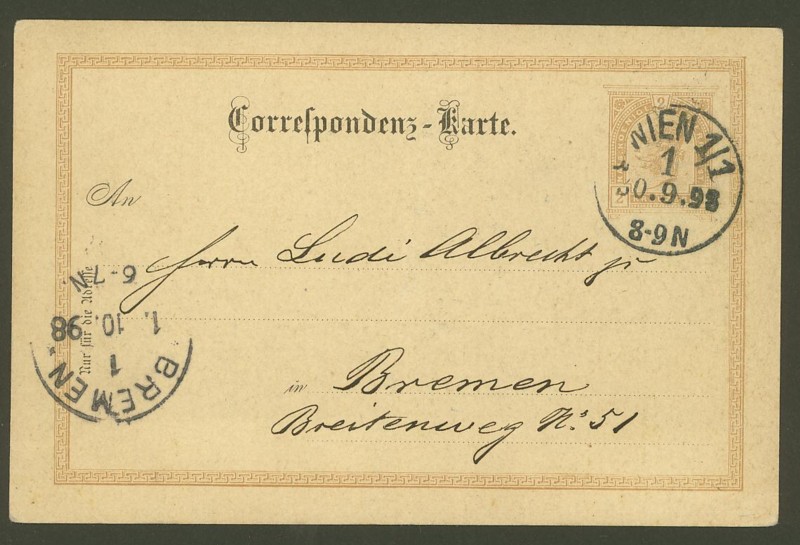 Correspondenz-Karte.
2
2
WIEN 1/1
1
30.9.98
8-9N
An
Herrn Ludi Albrecht jr
in Bremen
Breitenweg No. 51
Nur für die Adresse
6-7N.
1. 10. 98
1
BREMEN